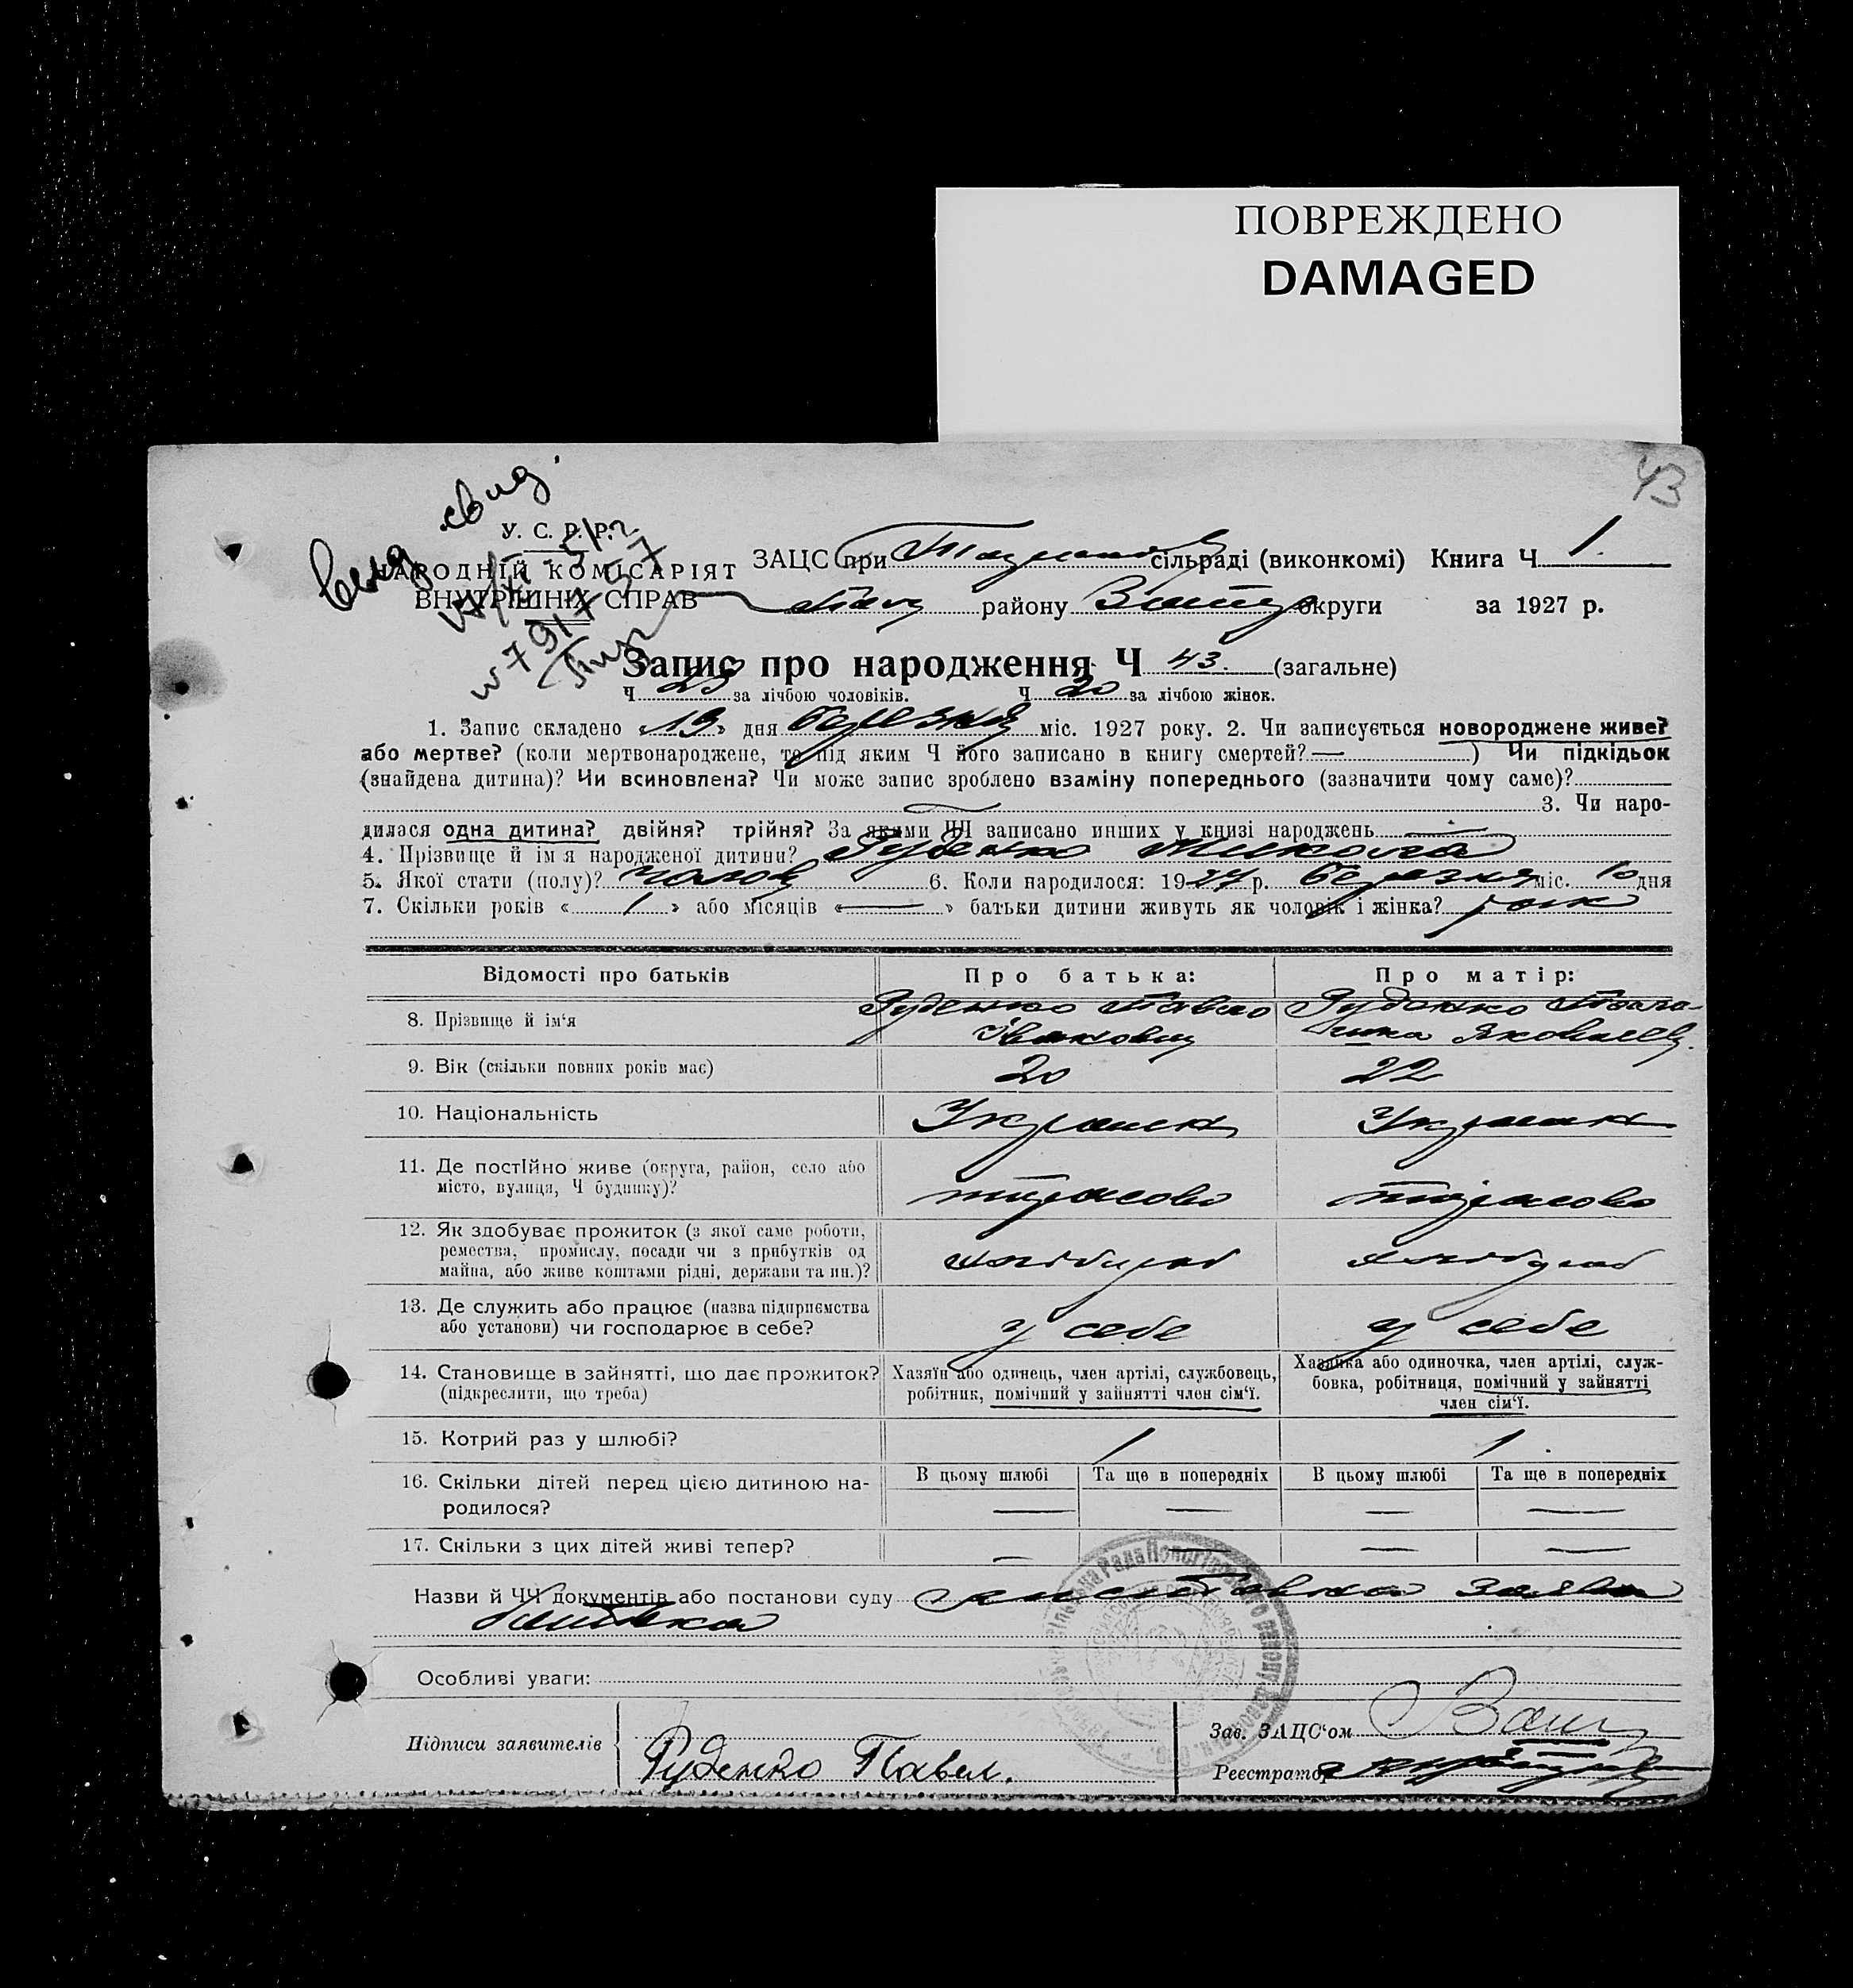 ПОВРЕЖДЕНО
DAMAGED
43
вид. свид.
У. С. Р. Р.
НАРОДНІЙ КОМІСАРІЯТ
ВНУТРІШНІХ СПРАВ
ЗАЦС при сільраді (виконкомі) Книга Ч 1.
району округи за 1927 р.
Запис про народження Ч 43. (загальне)
Ч 23 за лічбою чоловіків. Ч 20 за лічбою жінок.
1. Запис складено «19» дня березня міс. 1927 року. 2. Чи записується новороджене живе?
або мертве? (коли мертвонароджене, то під яким Ч його записано в книгу смертей? — ) Чи підкідьок
(знайдена дитина)? Чи всиновлена? Чи може запис зроблено взаміну попереднього (зазначити чому саме)?
3. Чи наро-
дилася одна дитина? двійня? трійня? За якими ЧЧ записано инших у книзі народжень —
4. Прізвище й ім'я народженої дитини? Руденко Микола
5. Якої стати (полу)? чолов 6. Коли народилося: 1927 р. березня міс. 10 дня
7. Скільки років « 1 » або місяців « — » батьки дитини живуть як чоловік і жінка? рок
Відомості про батьків Про батька: Про матір:
8. Прізвище й ім'я Руденко Павло Руденко
Іванович Яковлев.
9. Вік (скільки повних років має) 20 22
10. Національність Украинк Украинк
11. Де постійно живе (округа, район, село або
місто, вулиця, Ч будинку)? тарасово тарасово
12. Як здобуває прожиток (з якої саме роботи,
ремества, промислу, посади чи з прибутків од
майна, або живе коштами рідні, держави та ин.)? хлібороб хлібороб
13. Де служить або працює (назва підприємства
або установи) чи господарює в себе? у себе у себе
14. Становище в зайнятті, що дає прожиток?
(підкреслити, що треба)
Хазяїн або одинець, член артілі, службовець,
робітник, помічний у зайнятті член сім'ї.
Хазяйка або одиночка, член артілі, служ-
бовка, робітниця, помічний у зайнятті
член сім'ї.
15. Котрий раз у шлюбі? 1 1.
16. Скільки дітей перед цією дитиною на-
родилося?
В цьому шлюбі Та ще в попередніх В цьому шлюбі Та ще в попередніх
— — — —
17. Скільки з цих дітей живі тепер? — — — —
Назви й ЧЧ документів або постанови суду заява
батька
Особливі уваги:
Підписи заявителів Руденко Павел.
Зав. ЗАЦС'ом
Реєстратор